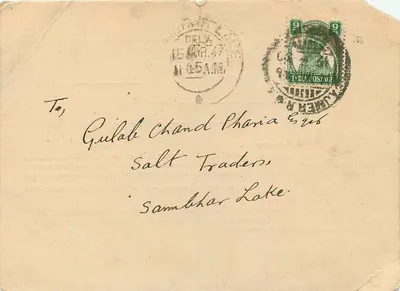 DELY.
11.45 A.M.
AJMER R
To,
Gulab Chand Pharia Esqr
Salt Traders,
Sambhar Lake.